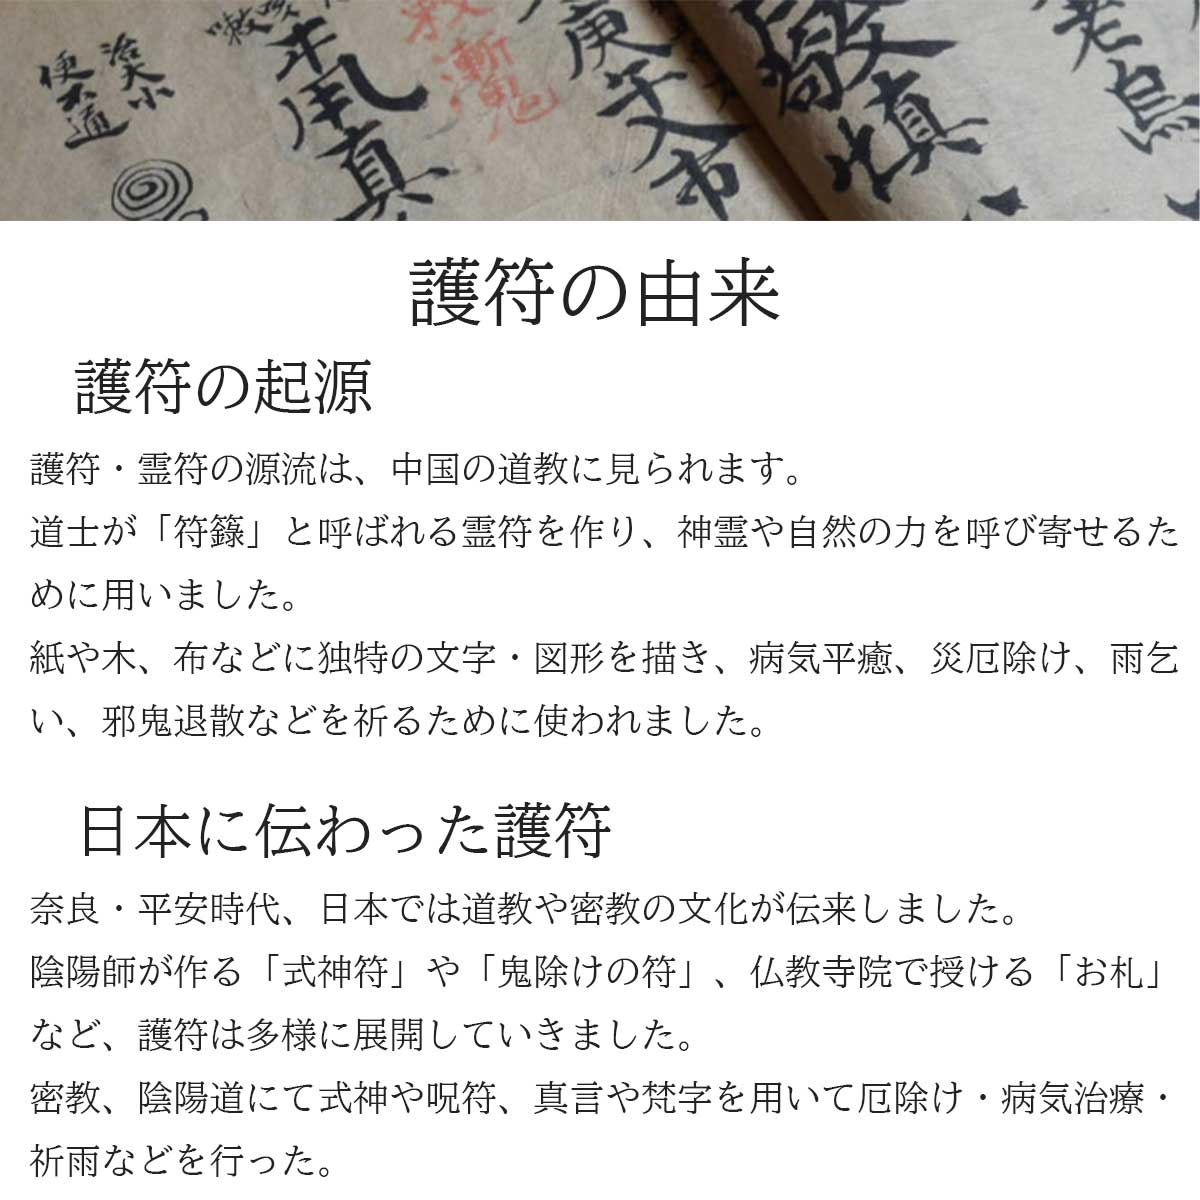 治大小
便不通
鬼
庚
子
真
真
老
烏
護符の由来
護符の起源
護符・霊符の源流は、中国の道教に見られます。
道士が「符籙」と呼ばれる霊符を作り、神霊や自然の力を呼び寄せるた
めに用いました。
紙や木、布などに独特の文字・図形を描き、病気平癒、災厄除け、雨乞
い、邪鬼退散などを祈るために使われました。
日本に伝わった護符
奈良・平安時代、日本では道教や密教の文化が伝来しました。
陰陽師が作る「式神符」や「鬼除けの符」、仏教寺院で授ける「お札」
など、護符は多様に展開していきました。
密教、陰陽道にて式神や呪符、真言や梵字を用いて厄除け・病気治療・
祈雨などを行った。